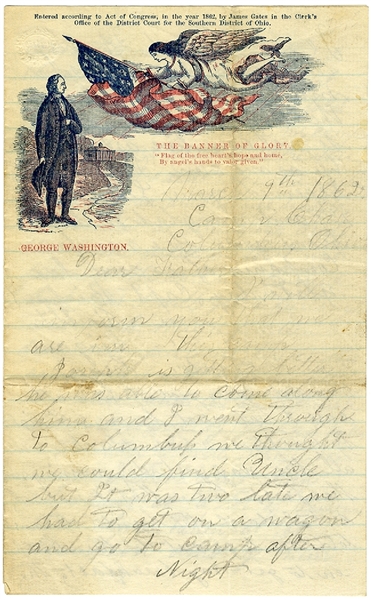 Entered according to Act of Congress, in the year 1862, by James Gates in the Clerk's
Office of the District Court for the Southern District of Ohio.
THE BANNER OF GLORY.
"Flag of the free heart's hope and home,
By angel's hands to valor given."
GEORGE WASHINGTON.
9th 1862
Camp Chase
Columbus Ohio
Dear Father
you that we
are in
is
he was able to come along
and I went through
to Columbus we thought
we could find Uncle
but It was two late we
had to get on a wagon
and go to camp after
Night